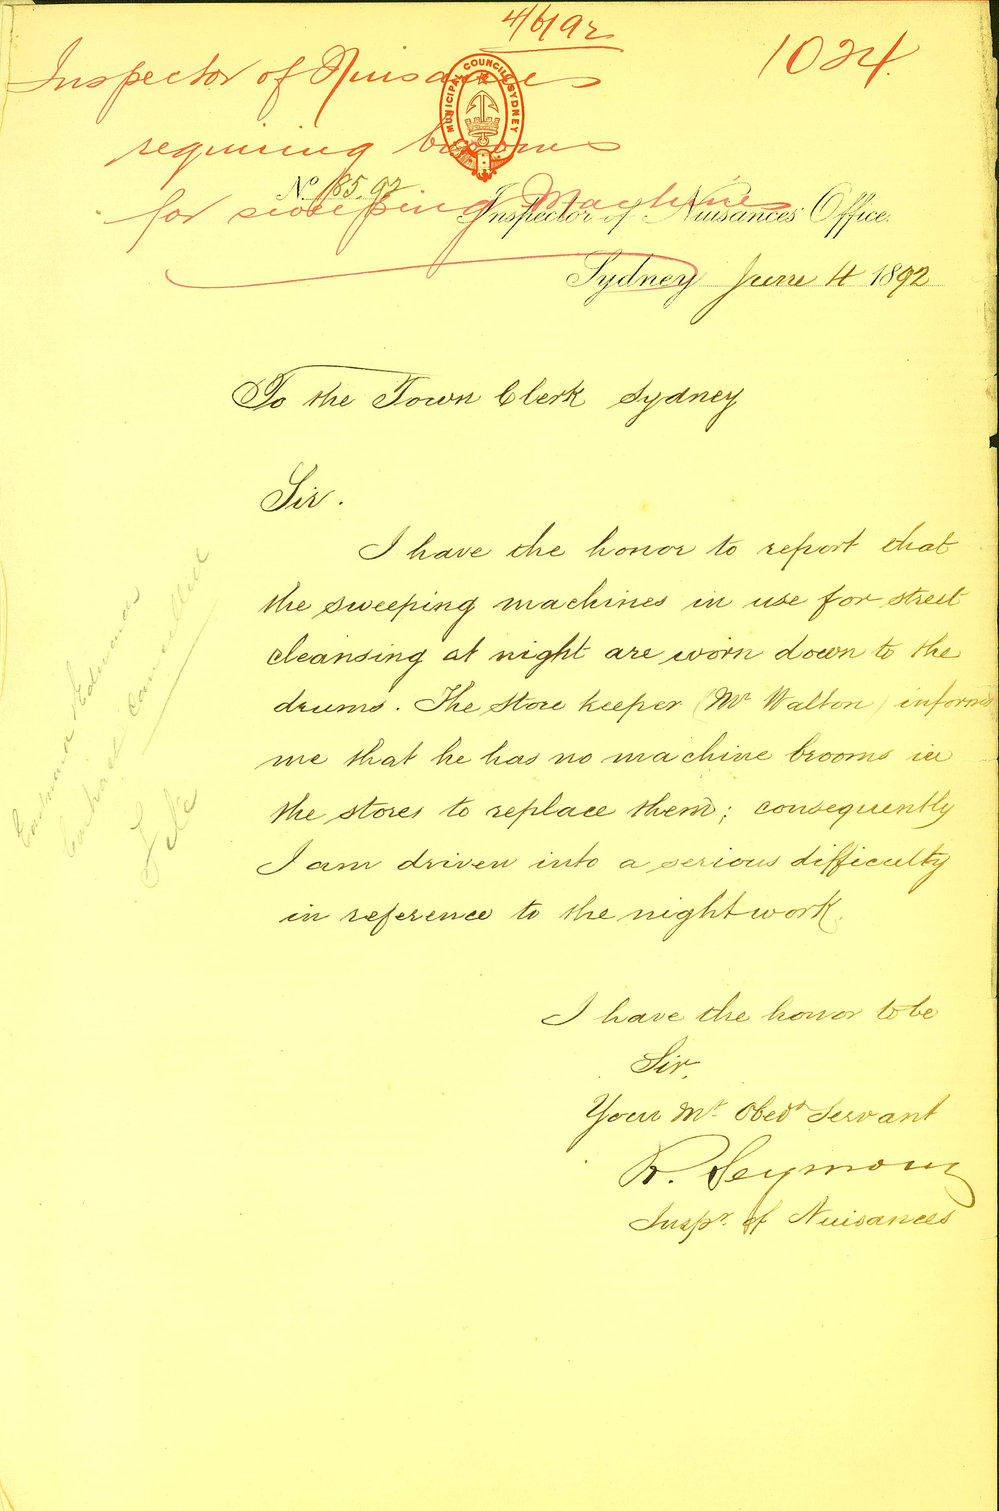 4/6/92
1024
Inspector of Nuisances
requiring brooms
for sweeping Machines
MUNICIPAL COUNCIL SYDNEY
No 185.92
Inspector of Nuisances' Office.
Sydney June 4 1892
To the Town Clerk Sydney
Sir.
I have the honor to report that
the sweeping machines in use for street
cleansing at night are worn down to the
drums. The store keeper (Mr Walton) informs
me that he has no machine brooms in
the stores to replace them; consequently
I am driven into a serious difficulty
in reference to the night work.
I have the honor to be
Sir,
Your Mt. Obedt Servant
R. Seymour
Inspr. of Nuisances
cancelled
File